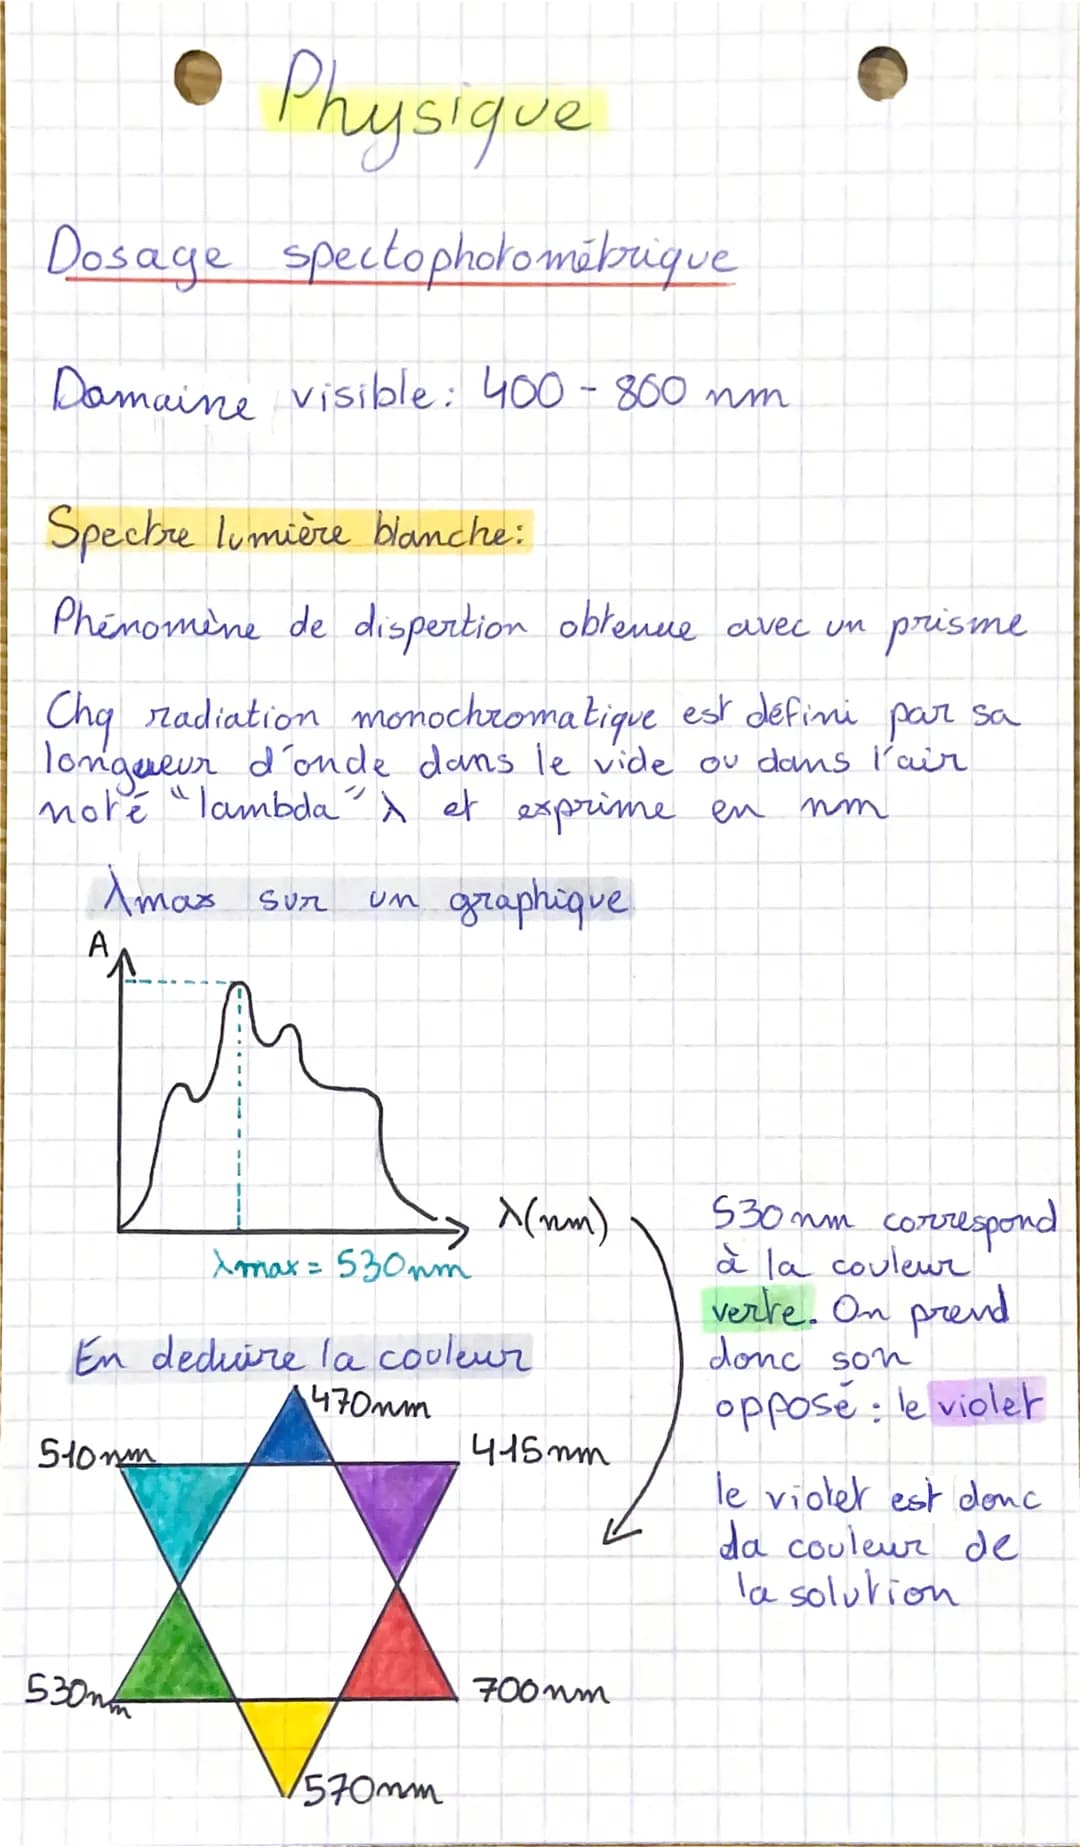 Physique
Dosage spectophotométrique
Domaine visible : 400 - 800 nm
Spectre lumière blanche :
Phénomène de dispertion obtenue avec un prisme
Chq radiation monochromatique est défini par sa
longueur d'onde dans le vide ou dans l'air
noté "lambda" λ et exprime en nm
λmax sur un graphique
A
λ(nm)
λmax = 530nm
530nm correspond
à la couleur
verte. On prend
donc son
opposé : le violet
le violet est donc
da couleur de
la solution
En deduire la couleur
470nm
510nm
415nm
530nm
700nm
570nm